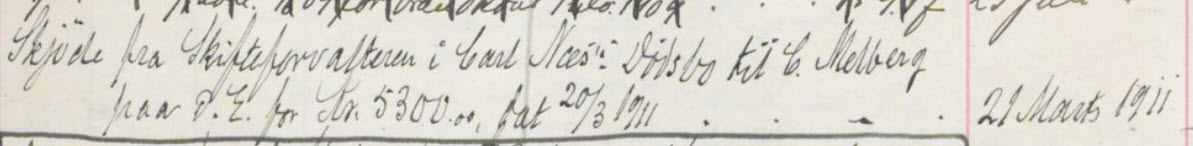 Skjöde fra Skifteforvalteren i Carl Næs's Dödsbo til C. Melberg
paa d. E. for Kr. 5300.00, dat 20/3 1911 . . . . 21 Marts 1911